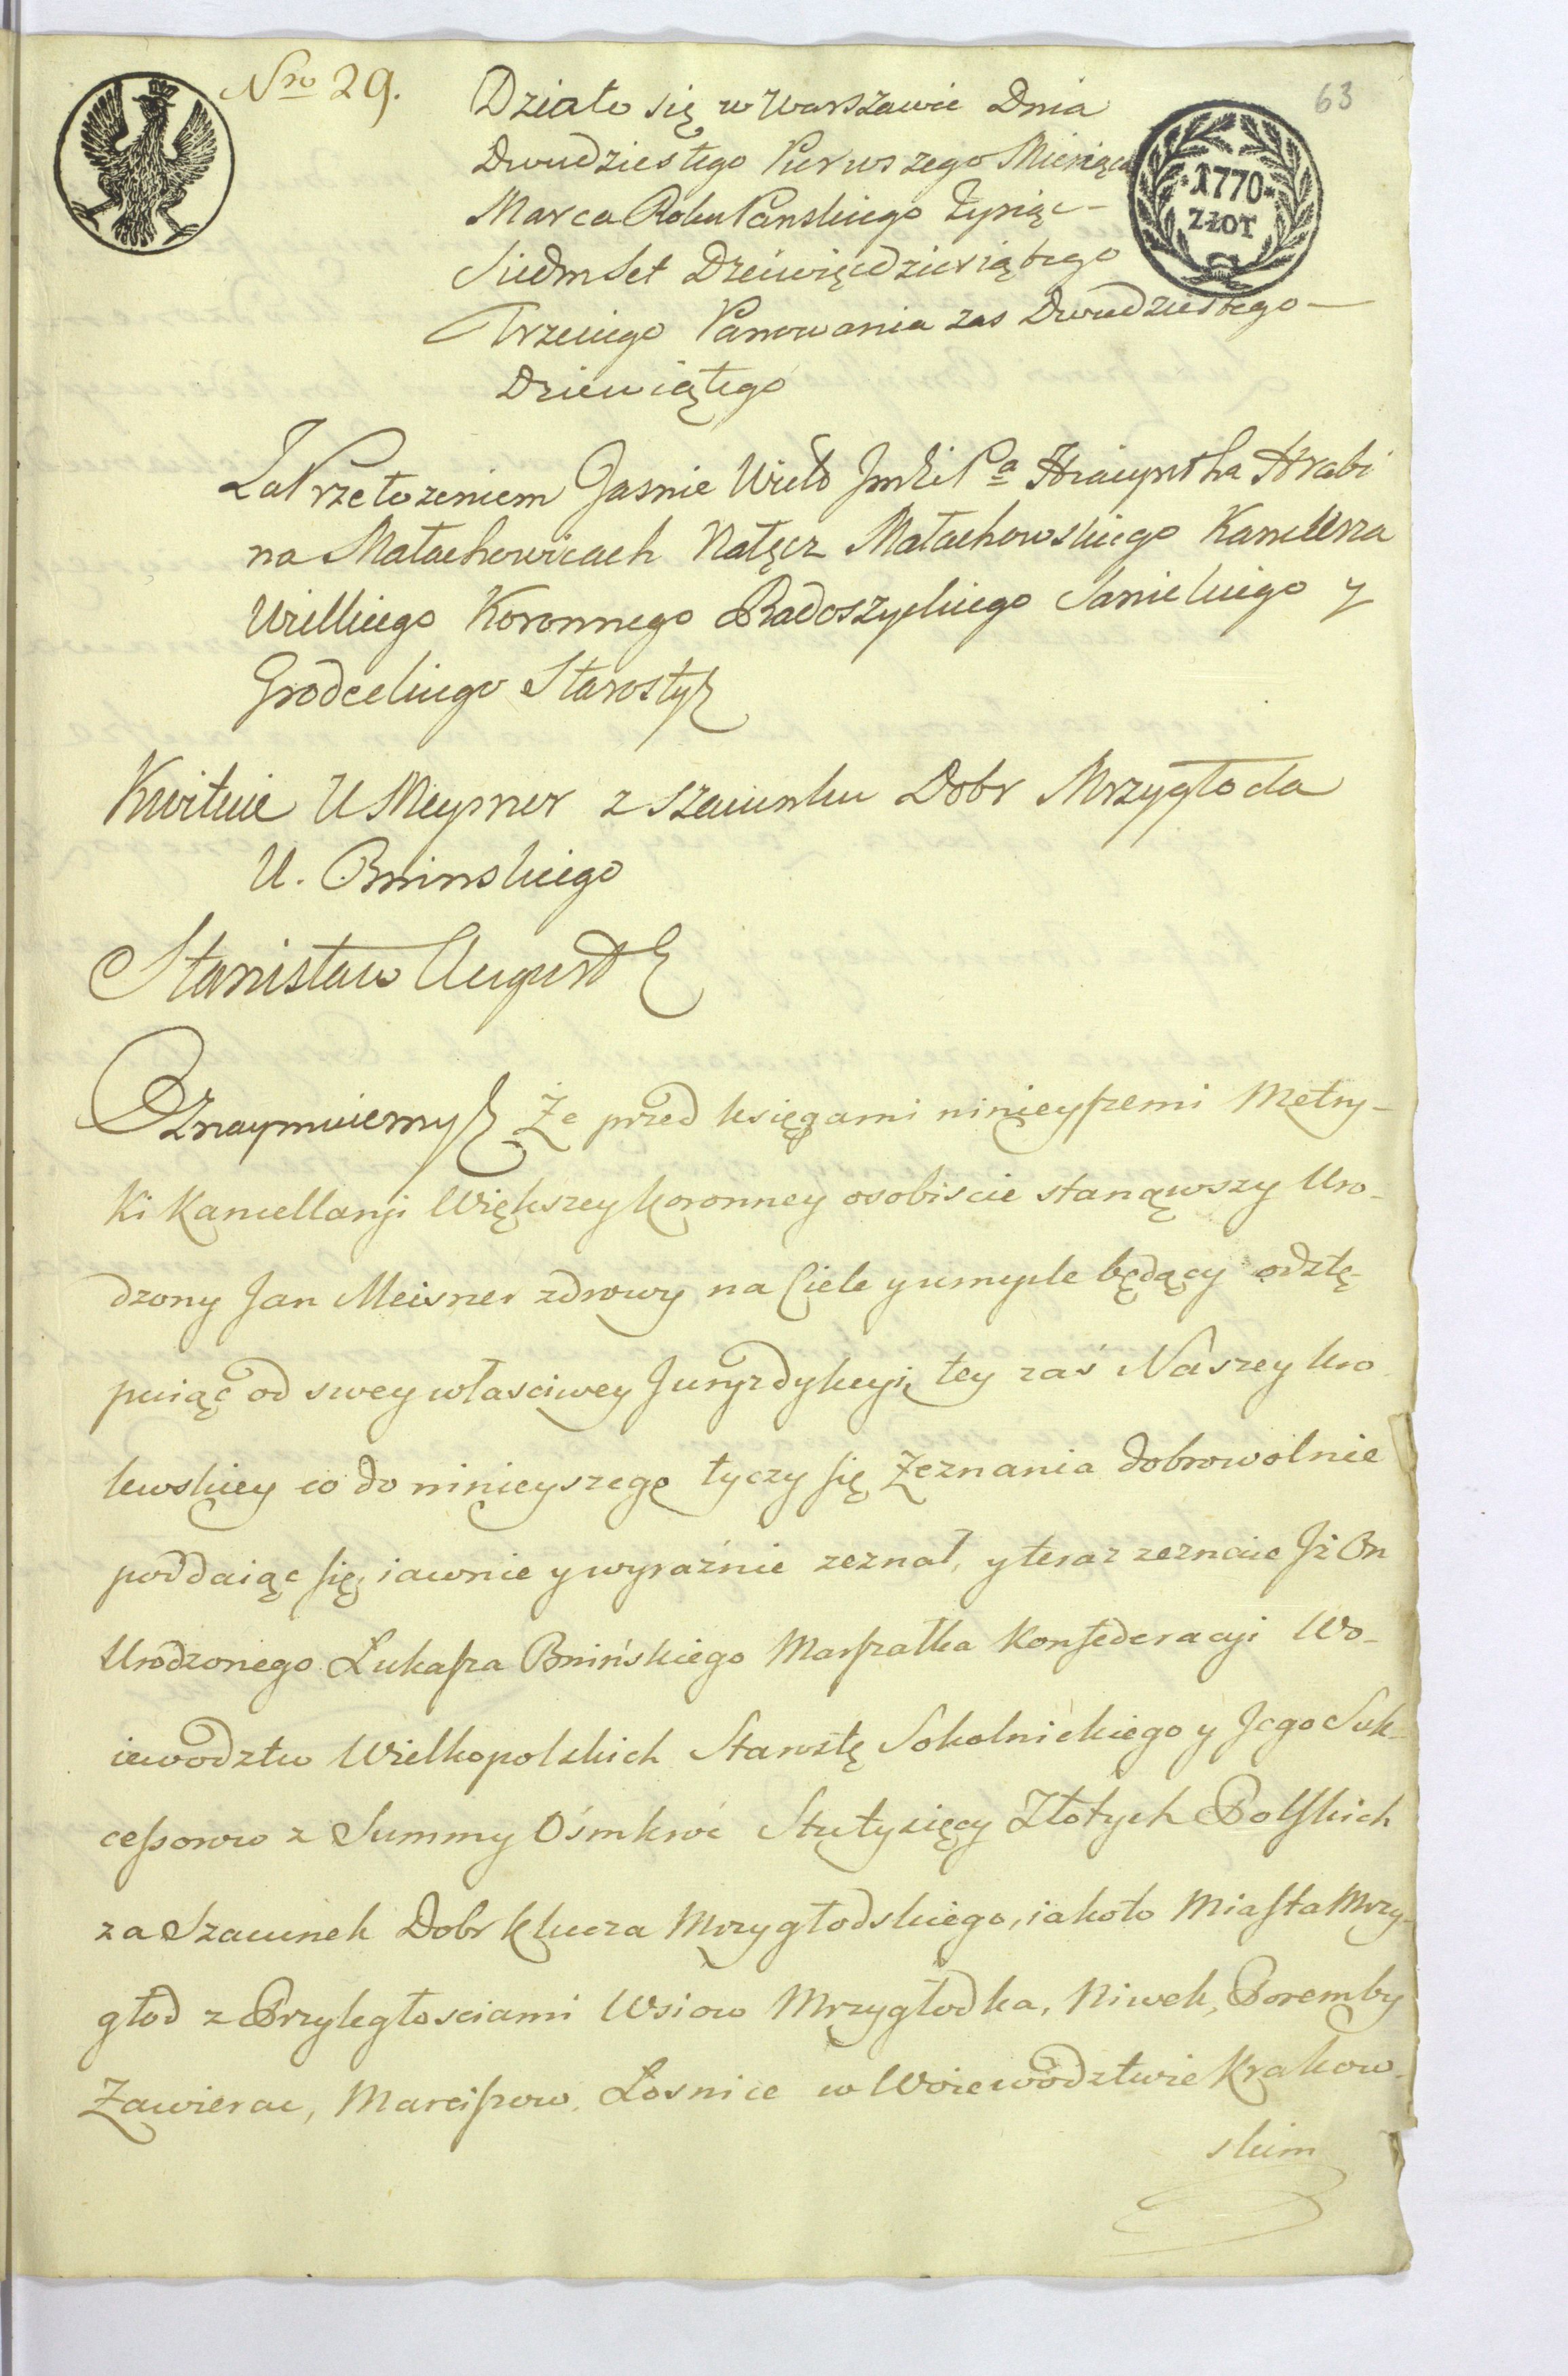 Nro 29.
63
1770
ZŁOT
Działo się w Warszawie Dnia
Dwudziestego Pierwszego Miesiąca
Marca Roku Panskiego Tysiąc-
Siedmset Dziewięcdziesiątego
Trzeciego Panowania zas Dwudziestego-
Dziewiątego
Za Przełozeniem Jasnie Wielo Jmści Pa Hiacyntha Hrabi
na Małachowicach Nałęcz Małachowskiego Kanclerza
Wielkiego Koronnego Radoszyckiego Sanickiego y
Grodeckiego Starosty
Kwituie U Meysner z szacunku Dobr Mrzygłoda
U. Bninskiego
Stanisław August
Oznaymuiemy Że przed księgami ninieyszemi Metry-
ki Kancellaryi Większey koronney osobiscie stanąwszy Uro-
dzony Jan Meisner zdrowy na Ciele y umysle będący odstę-
puiąc od swey własciwey Juryzdykcyi, tey zaś Naszey kro-
lewskiey co do ninieyszego tyczy się Zeznania dobrowolnie
poddaiąc się, iawnie y wyraźnie zeznał, y teraz zeznaie Jż On
Urodzonego Łukasza Bnińskiego Marszałka Konfederacyi Wo-
iewodztw Wielkopolskich Starostę Sokolnickiego y Jego Suk-
cessorow z Summy Ośmkroć Stutysięcy Złotych Polskich
za Szacunek Dobr klucza Mrzygłodskiego, iakoto Miasta Mrzy-
głod z Przyległosciami Wsiow Mrzygłodka, Niwek, Poremby
Zawierac, Marciszow, Łosnice w Woiewodztwie Krakow-
skim